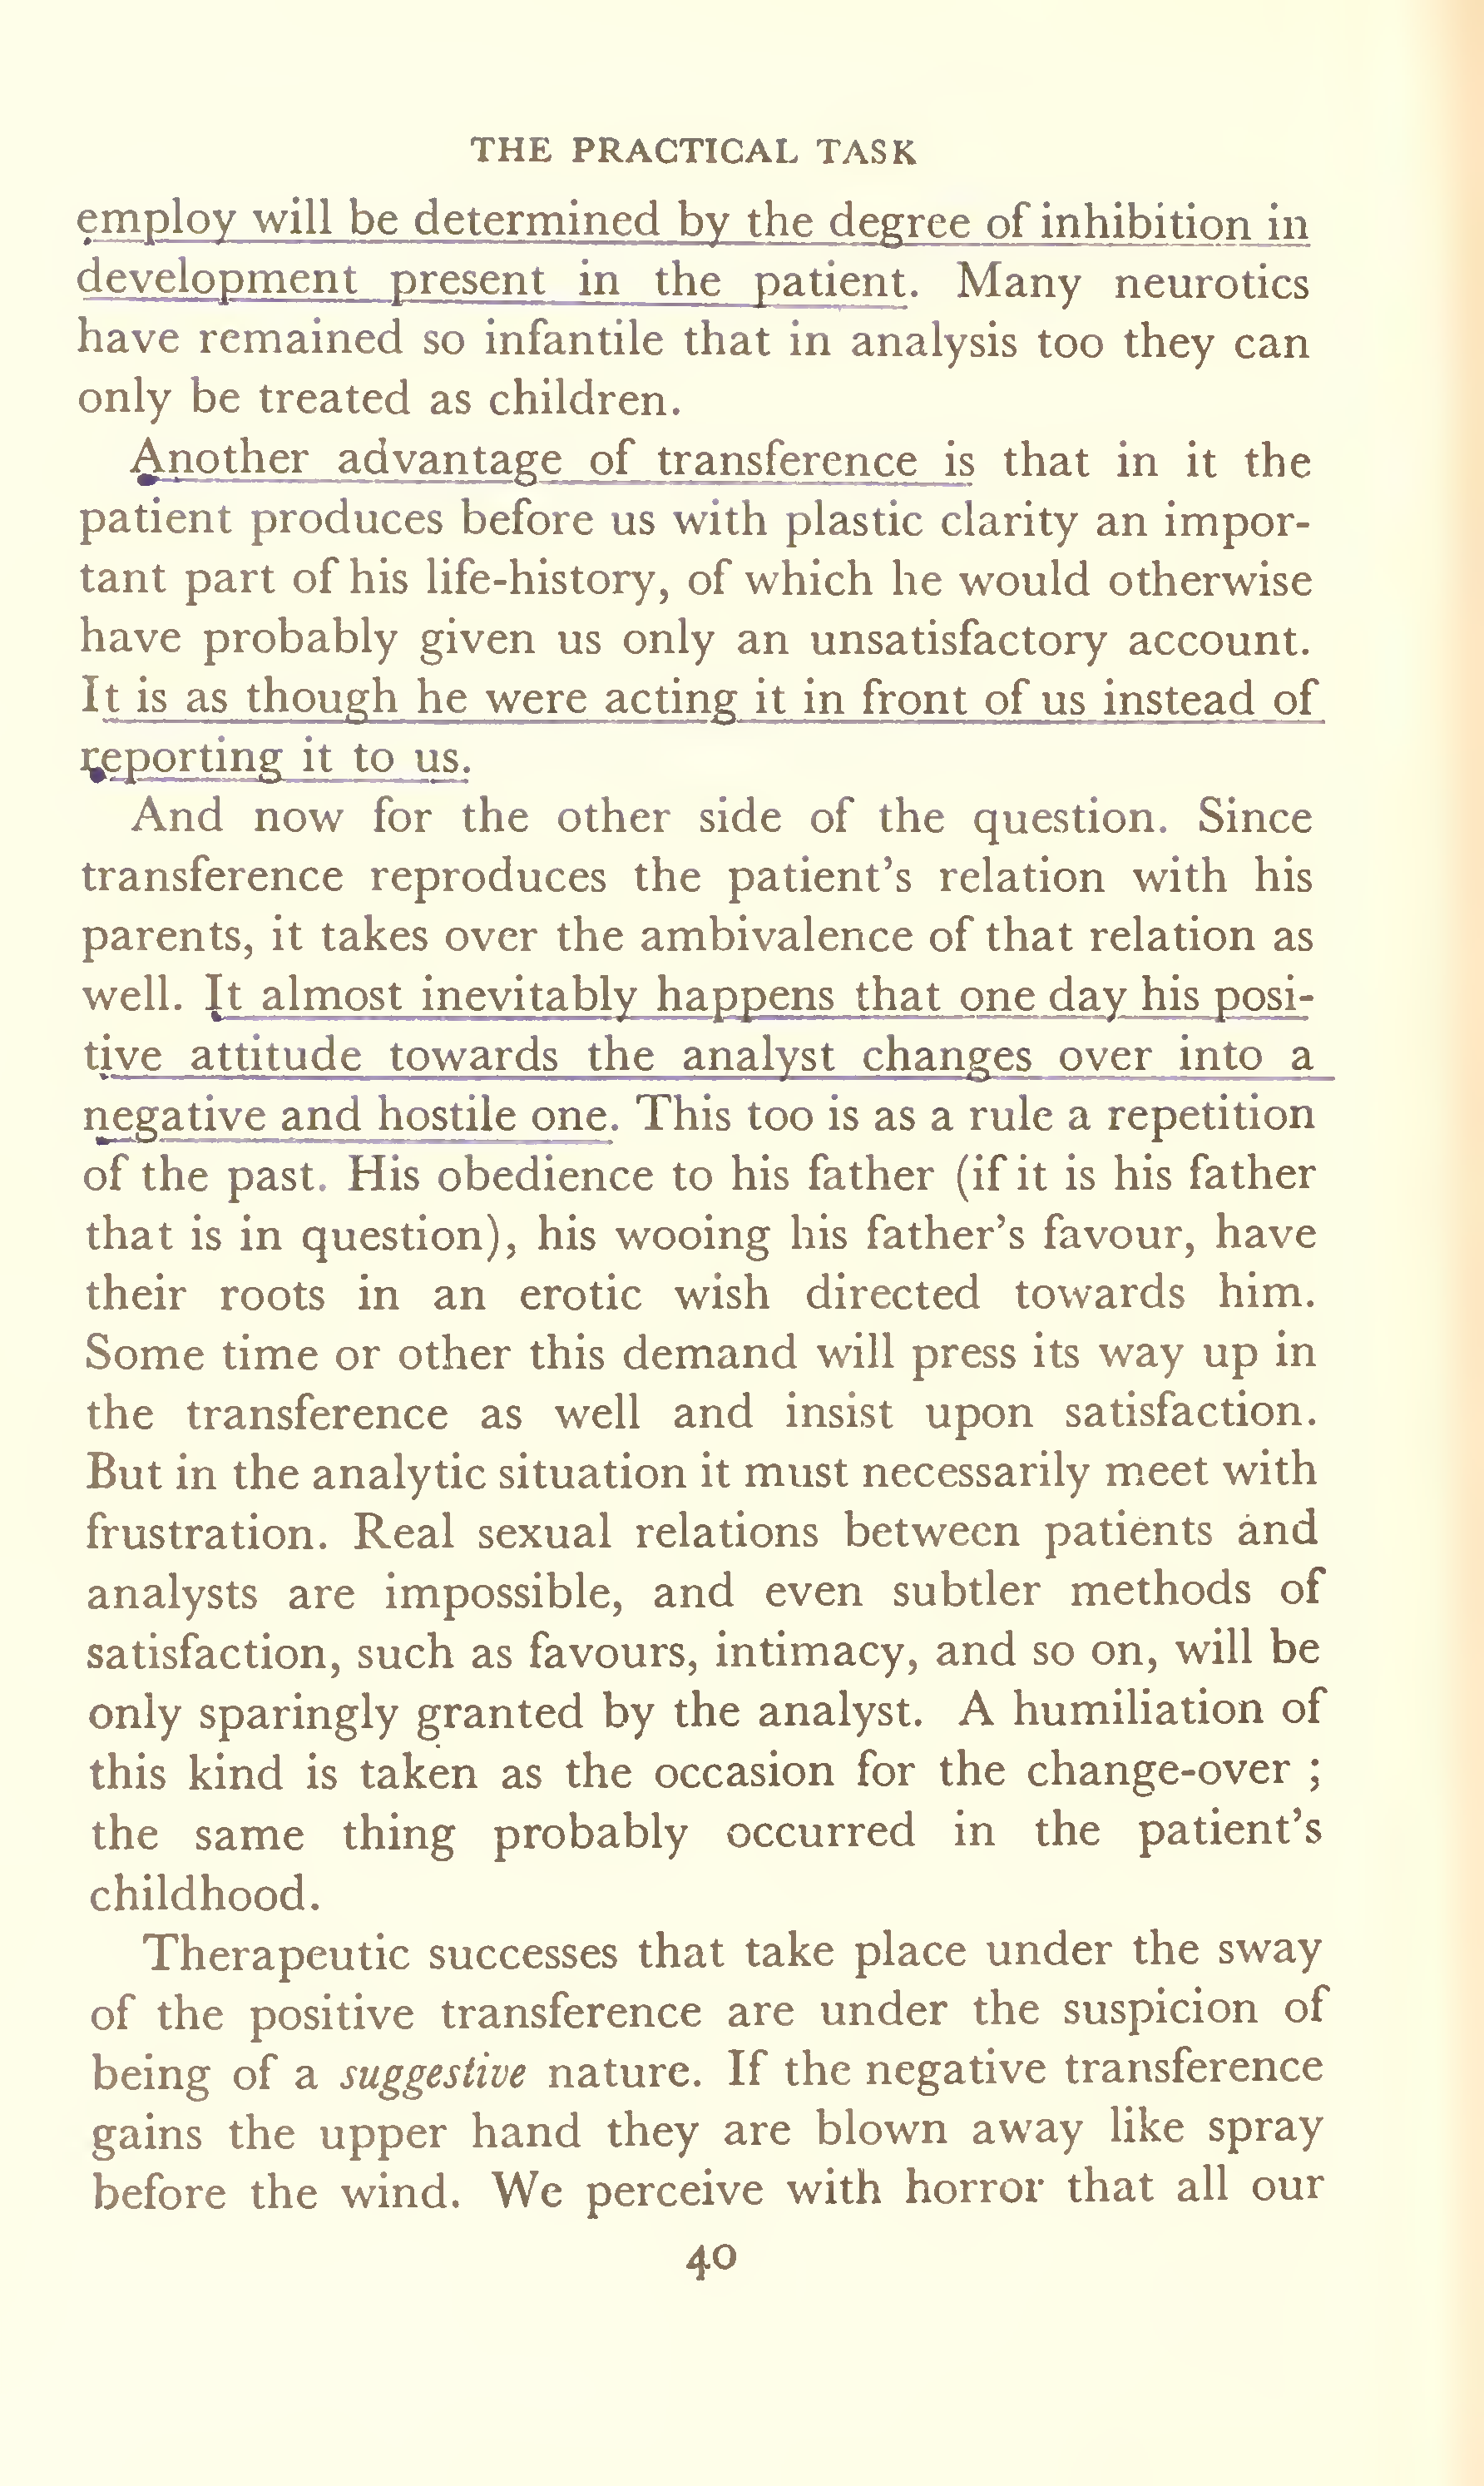 THE PRACTICAL TASK
employ will be determined by the degree of inhibition in
development present in the patient. Many neurotics
have remained so infantile that in analysis too they can
only be treated as children.
Another advantage of transference is that in it the
patient produces before us with plastic clarity an impor-
tant part of his life-history, of which he would otherwise
have probably given us only an unsatisfactory account.
It is as though he were acting it in front of us instead of
reporting it to us.
And now for the other side of the question. Since
transference reproduces the patient's relation with his
parents, it takes over the ambivalence of that relation as
well. It almost inevitably happens that one day his posi-
tive attitude towards the analyst changes over into a
negative and hostile one. This too is as a rule a repetition
of the past. His obedience to his father (if it is his father
that is in question), his wooing his father's favour, have
their roots in an erotic wish directed towards him.
Some time or other this demand will press its way up in
the transference as well and insist upon satisfaction.
But in the analytic situation it must necessarily meet with
frustration. Real sexual relations between patients and
analysts are impossible, and even subtler methods of
satisfaction, such as favours, intimacy, and so on, will be
only sparingly granted by the analyst. A humiliation of
this kind is taken as the occasion for the change-over ;
the same thing probably occurred in the patient's
childhood.
Therapeutic successes that take place under the sway
of the positive transference are under the suspicion of
being of a suggestive nature. If the negative transference
gains the upper hand they are blown away like spray
before the wind. We perceive with horror that all our
40